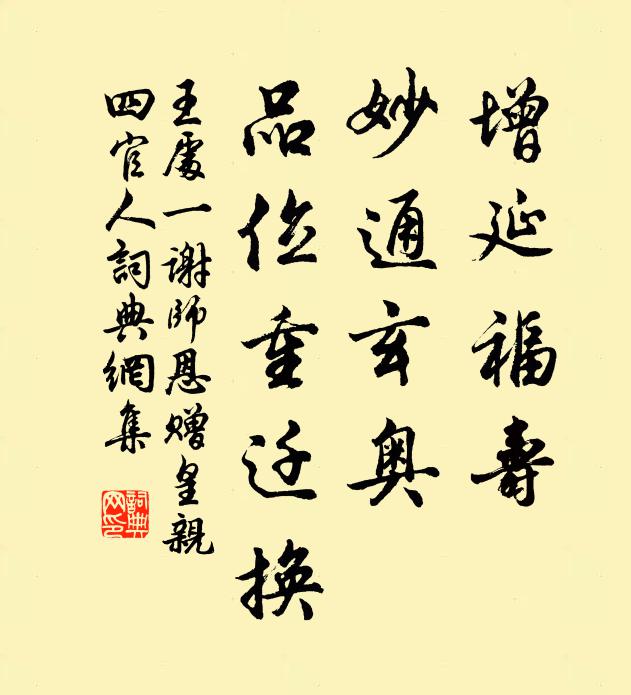 增延福壽
妙通玄奧
品位重迁換
王處一謝師恩贈皇親
四官人詞典網集
詞典
网印